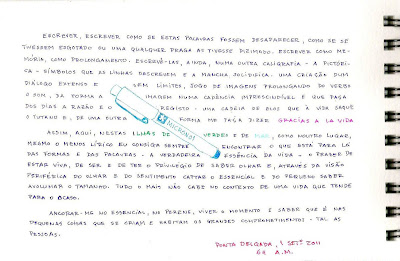 ESCREVER, ESCREVER COMO SE ESTAS PALAVRAS FOSSEM DESAPARECER, COMO SE SE
TIVESSEM ESGOTADO OU UMA QUALQUER PRAGA AS TIVESSE DIZIMADO. ESCREVER COMO ME-
MÓRIA, COMO PROLONGAMENTO. ESCREVÊ-LAS, AINDA, NUMA OUTRA CALIGRAFIA - A PICTÓRI-
CA - SÍMBOLOS QUE AS LINHAS DESCREVEM E A MANCHA SOLIDIFICA. UMA CRIAÇÃO NUM
DIÁLOGO EXTENSO E SEM LIMITES, JOGO DE IMAGENS PROLONGANDO DO VERBO
O SOM, DA FORMA A IMAGEM NUMA CADÊNCIA IMPRESCINDÍVEL E QUE FAÇA
DOS DIAS A RAZÃO E O REGISTO - UMA CADEIA DE ELOS QUE À VIDA SAQUE
O TUTANO E, DE UMA OUTRA FORMA ME FAÇA DIZER GRACIAS A LA VIDA
MICRONAL
ASSIM, AQUI, NESTAS ILHAS DE VERDES E DE MAR, COMO NOUTRO LUGAR,
MESMO O MENOS LÍRICO EU CONSIGA SEMPRE ENCONTRAR O QUE ESTÁ PARA LÁ
DAS FORMAS E DAS PALAVRAS - A VERDADEIRA ESSÊNCIA DA VIDA - O PRAZER DE
ESTAR VIVA, DE SER E DE TER O PRIVILÉGIO DE SABER OLHAR E, ATRAVÉS DA VISÃO
PERIFÉRICA DO OLHAR E DO SENTIMENTO CAPTAR O ESSENCIAL E DO PEQUENO SABER
AVOLUMAR O TAMANHO. TUDO O MAIS NÃO CABE NO CONTEXTO DE UMA VIDA QUE TENDE
PARA O OCASO.
ANCORAR-ME NO ESSENCIAL, NO PERENE, VIVER O MOMENTO E SABER QUE É NAS
PEQUENAS COISAS QUE SE CRIAM E HABITAM OS GRANDES COMPROMETIMENTOS - TAL AS
PESSOAS.
PONTA DELGADA, 1 SETº 2011
A.M.